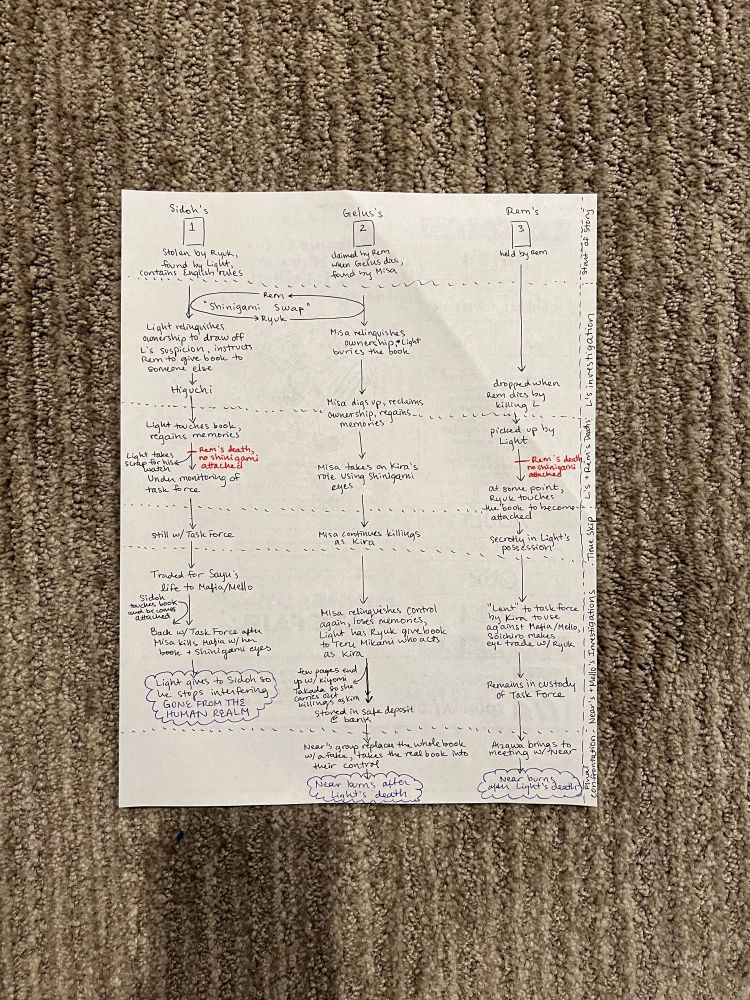 Sidoh's
1
Stolen by Ryuk,
found by Light,
contains English rules
Gelus's
2
claimed by Rem
when Gelus dies,
found by Misa
Rem's
3
held by Rem
Start of Story
Rem
"Shinigami Swap"
Ryuk
Light relinquishes
ownership to draw off
L's suspicion, instructs
Rem to give book to
someone else
Higuchi
Misa relinquishes
ownership, Light
buries the book
Misa digs up, reclaims
ownership, regains
memories
dropped when
Rem dies by
killing L
L's investigation
Light touches book,
regains memories
Light takes
scrap for his
watch
Rem's death,
no shinigami
attached
Under monitoring of
task force
Misa takes on Kira's
role using Shinigami
eyes
picked up by
Light
Rem's death,
no shinigami
attached
at some point,
Ryuk touches
the book to become
attached
L's + Rem's Death
Still w/ Task Force
Misa continues killings
as Kira
Secretly in Light's
possession
Time Skip
Traded for Sayu's
life to Mafia/Mello
Sidoh
touches book
and becomes
attached
Back w/ Task Force after
Misa kills Mafia w/ her
book + Shinigami eyes
Light gives to Sidoh so
he stops interfering
GONE FROM THE
HUMAN REALM
Misa relinquishes control
again, loses memories,
Light has Ryuk give book
to Teru Mikami who acts
as Kira
few pages end
up w/ Kiyomi
Takada so she
carries out
killings as Kira
stored in safe deposit
@ bank
"Lent" to task force
by Kira to use
against Mafia/Mello,
Soichiro makes
eye trade w/ Ryuk
Remains in custody
of Task Force
Near's + Mello's Investigations
Near's group replaces the whole book
w/ a fake, takes the real book into
their control
Near burns after
Light's death
Aizawa brings to
meeting w/ Near
Near burns
after Light's death
Final
confrontation